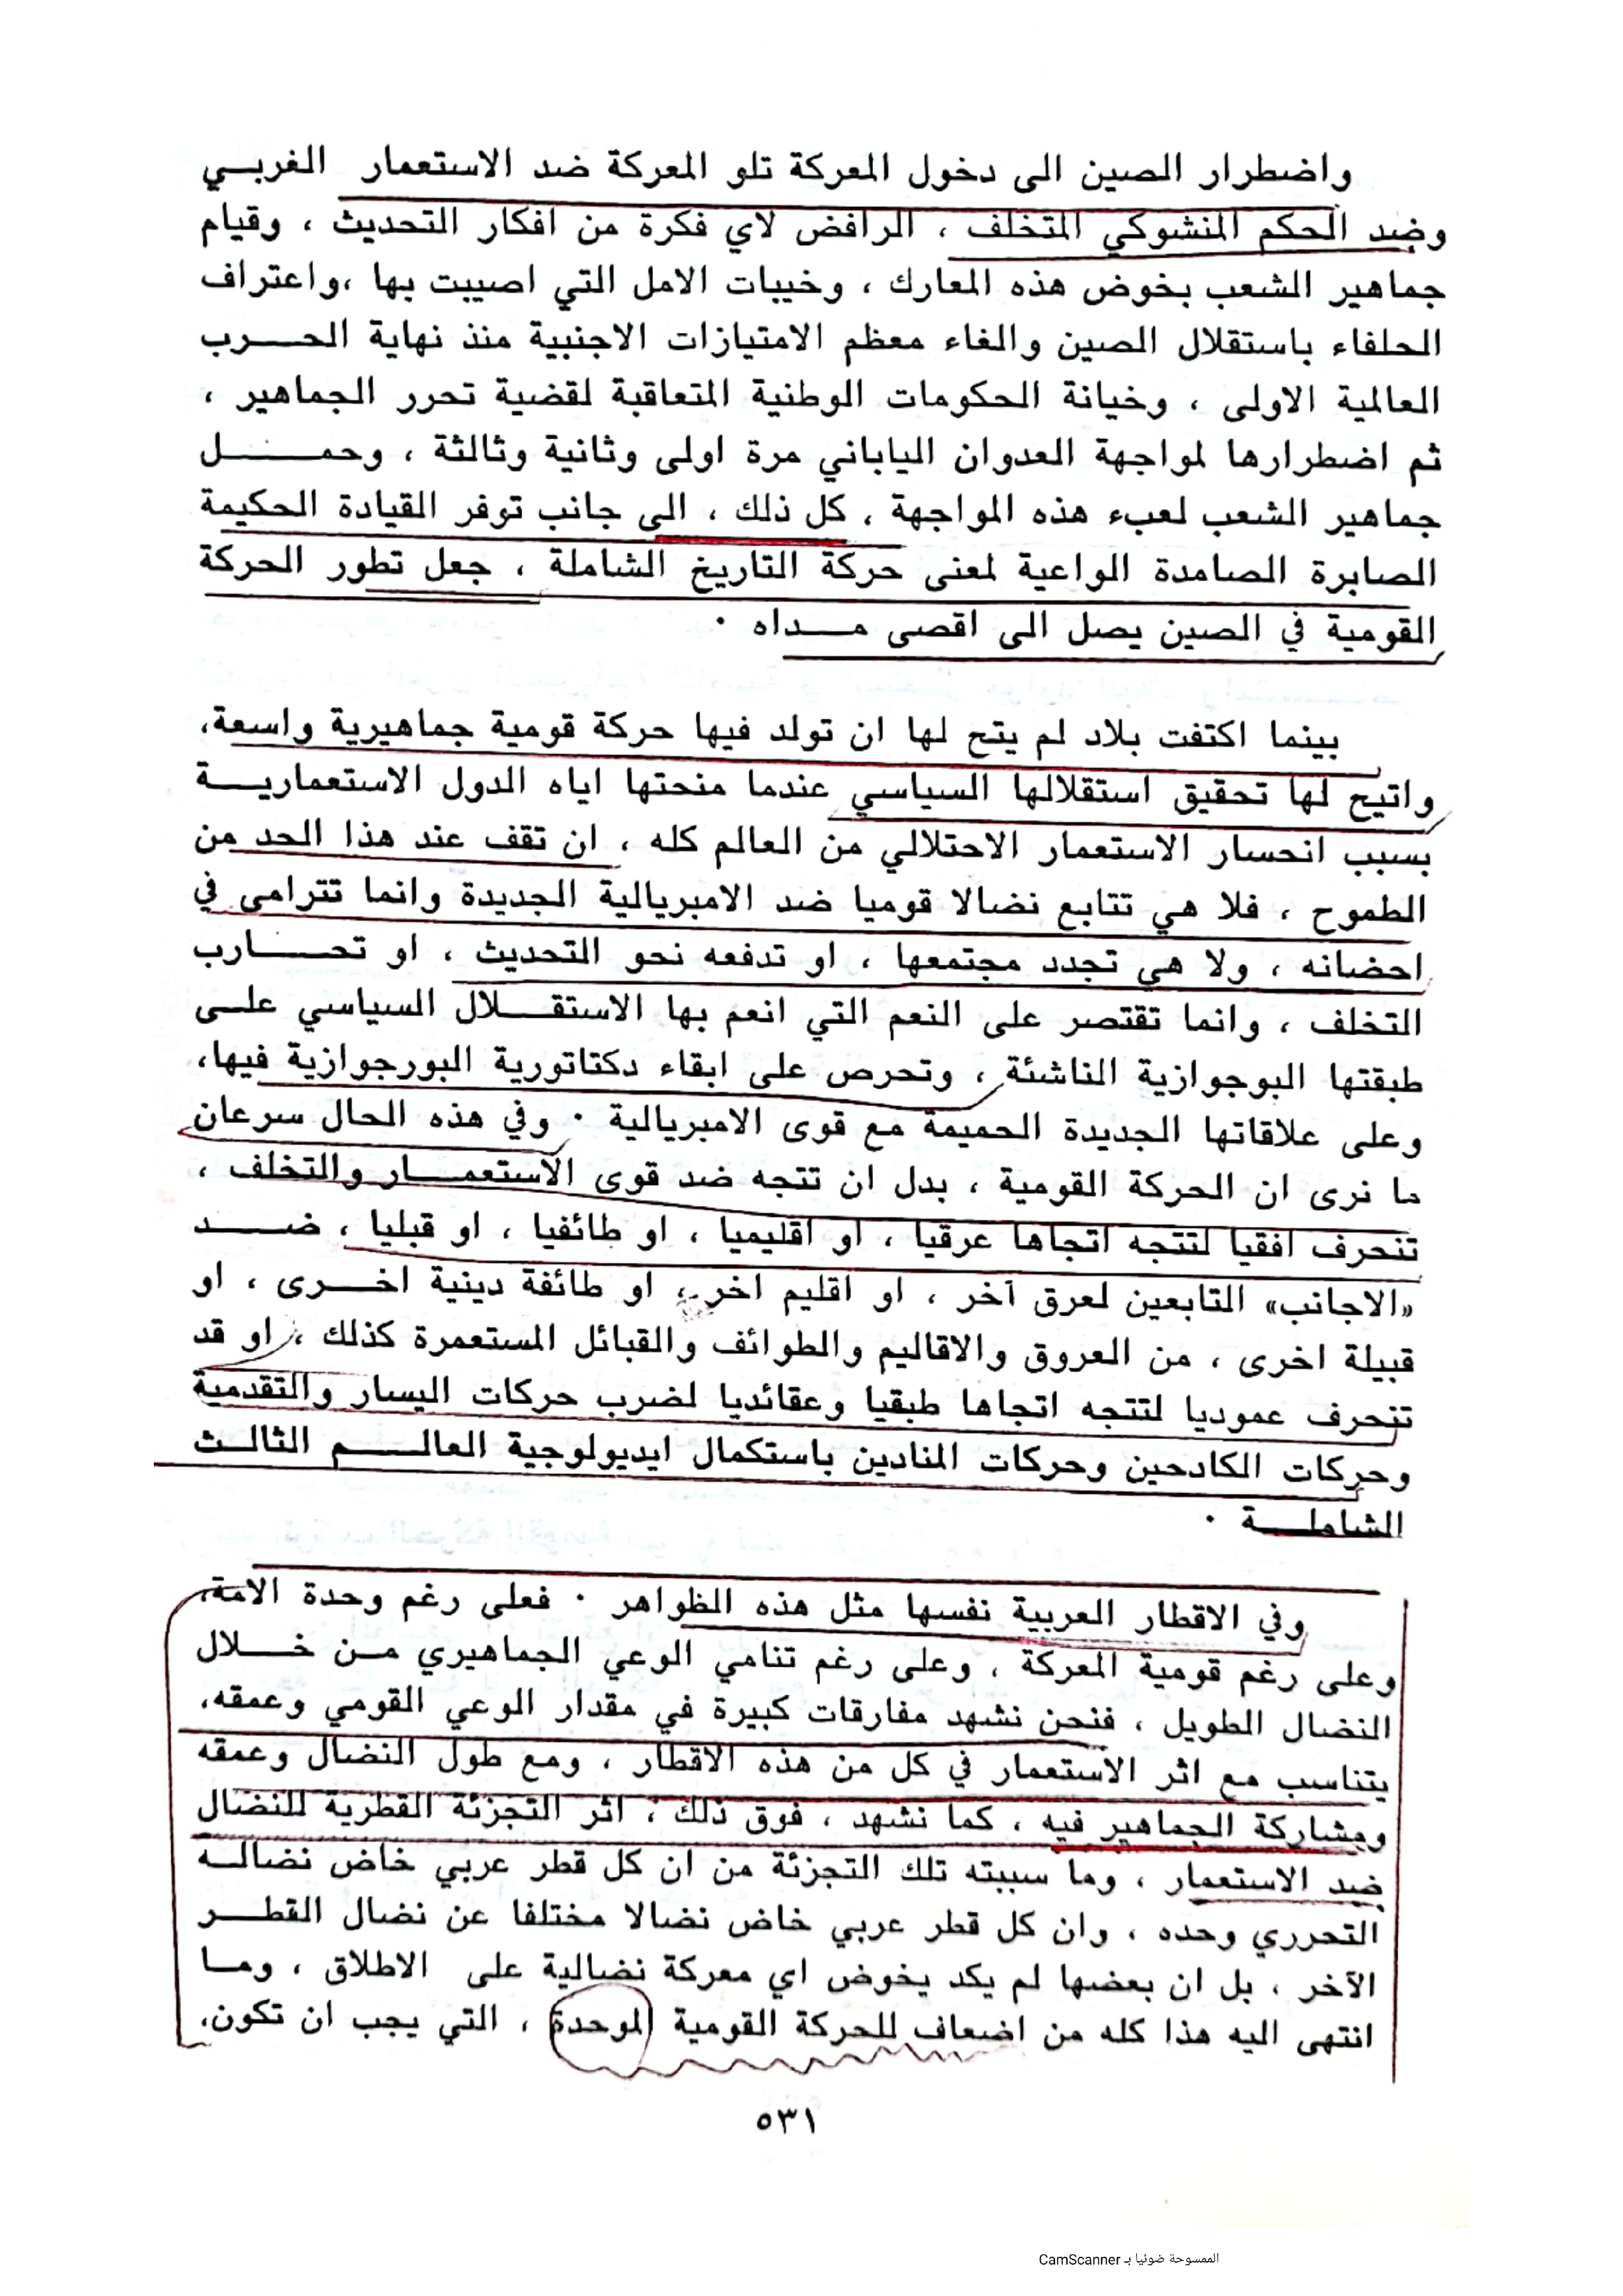 واضطرار الصين الى دخول المعركة تلو المعركة ضد الاستعمار الغربـي
وضد الحكم المنشوكي المتخلف ، الرافض لاي فكرة من افكار التحديث ، وقيام
جماهير الشعب بخوض هذه المعارك ، وخيبات الامل التي اصيبت بها ،واعتراف
الحلفاء باستقلال الصين والغاء معظم الامتيازات الاجنبية منذ نهاية الحـــرب
العالمية الاولى ، وخيانة الحكومات الوطنية المتعاقبة لقضية تحرر الجماهير ،
ثم اضطرارها لمواجهة العدوان الياباني مرة اولى وثانية وثالثة ، وحمـــــل
جماهير الشعب لعبء هذه المواجهة ، كل ذلك ، الى جانب توفر القيادة الحكيمة
الصابرة الصامدة الواعية لمعنى حركة التاريخ الشاملة ، جعل تطور الحركة
القومية في الصين يصل الى اقصى مـــداه ·
بينما اكتفت بلاد لم يتح لها ان تولد فيها حركة قومية جماهيرية واسعة،
واتيح لها تحقيق استقلالها السياسي عندما منحتها اياه الدول الاستعماريـــة
بسبب انحسار الاستعمار الاحتلالي من العالم كله ، ان تقف عند هذا الحد من
الطموح ، فلا هي تتابع نضالا قوميا ضد الامبريالية الجديدة وانما تترامى في
احضانه ، ولا هي تجدد مجتمعها ، او تدفعه نحو التحديث ، او تحـــارب
التخلف ، وانما تقتصر على النعم التي انعم بها الاستقـــلال السياسي علـى
طبقتها البوجوازية الناشئة ، وتحرص على ابقاء دكتاتورية البورجوازية فيها،
وعلى علاقاتها الجديدة الحميمة مع قوى الامبريالية · وفي هذه الحال سرعان
ما نرى ان الحركة القومية ، بدل ان تتجه ضد قوى الاستعمـــار والتخلف ،
تنحرف افقيا لتتجه اتجاها عرقيا ، او اقليميا ، او طائفيا ، او قبليا ، ضـــد
«الاجانب» التابعين لعرق آخر ، او اقليم اخر ، او طائفة دينية اخـــرى ، او
قبيلة اخرى ، من العروق والاقاليم والطوائف والقبائل المستعمرة كذلك ، او قد
تنحرف عموديا لتتجه اتجاها طبقيا وعقائديا لضرب حركات اليسار والتقدمية
وحركات الكادحين وحركات المنادين باستكمال ايديولوجية العالـــم الثالـث
الشاملـــة ·
وفي الاقطار العربية نفسها مثل هذه الظواهر · فعلى رغم وحدة الامة،
وعلى رغم قومية المعركة ، وعلى رغم تنامي الوعي الجماهيري مـن خـــلال
النضال الطويل ، فنحن نشهد مفارقات كبيرة في مقدار الوعي القومي وعمقه،
يتناسب مع اثر الاستعمار في كل من هذه الاقطار ، ومع طول النضال وعمقه
ومشاركة الجماهير فيه ، كما نشهد ، فوق ذلك ، اثر التجزئة القطرية للنضال
ضد الاستعمار ، وما سببته تلك التجزئة من ان كل قطر عربي خاض نضالـه
التحرري وحده ، وان كل قطر عربي خاض نضالا مختلفا عن نضال القطـــر
الآخر ، بل ان بعضها لم يكد يخوض اي معركة نضالية على الاطلاق ، ومـا
انتهى اليه هذا كله من اضعاف للحركة القومية الموحدة ، التي يجب ان تكون،
٥٣١
الممسوحة ضوئيا بـ CamScanner